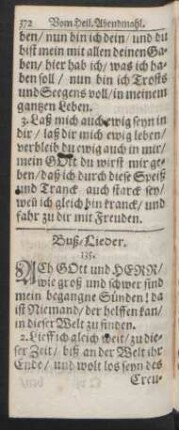 372 Vom Heil. Abendmahl.
ben/ nun bin ich dein/ und du
bist mein mit allen deinen Ga-
ben/ hier hab ich/ was ich ha-
ben soll/ nun bin ich Trosts
und Seegens voll/ in meinem
gantzen Leben.
3. Laß mich auch ewig seyn in
dir/ laß dir mich ewig leben/
verbleib du ewig auch in mir/
mein GOtt du wirst mir ge-
ben/ daß ich durch diese Speiß
und Tranck auch starck sey/
weñ ich gleich bin kranck/ und
fahr zu dir mit Freuden.
Buß-Lieder.
135.
ACh GOtt und HERR/
wie groß und schwer sind
mein begangne Sünden! da
ist Niemand/ der helffen kan/
in dieser Welt zu finden.
2. Lieff ich gleich weit/ zu die-
ser Zeit/ biß an der Welt ihr
Ende/ und wolt los seyn des
Creu-